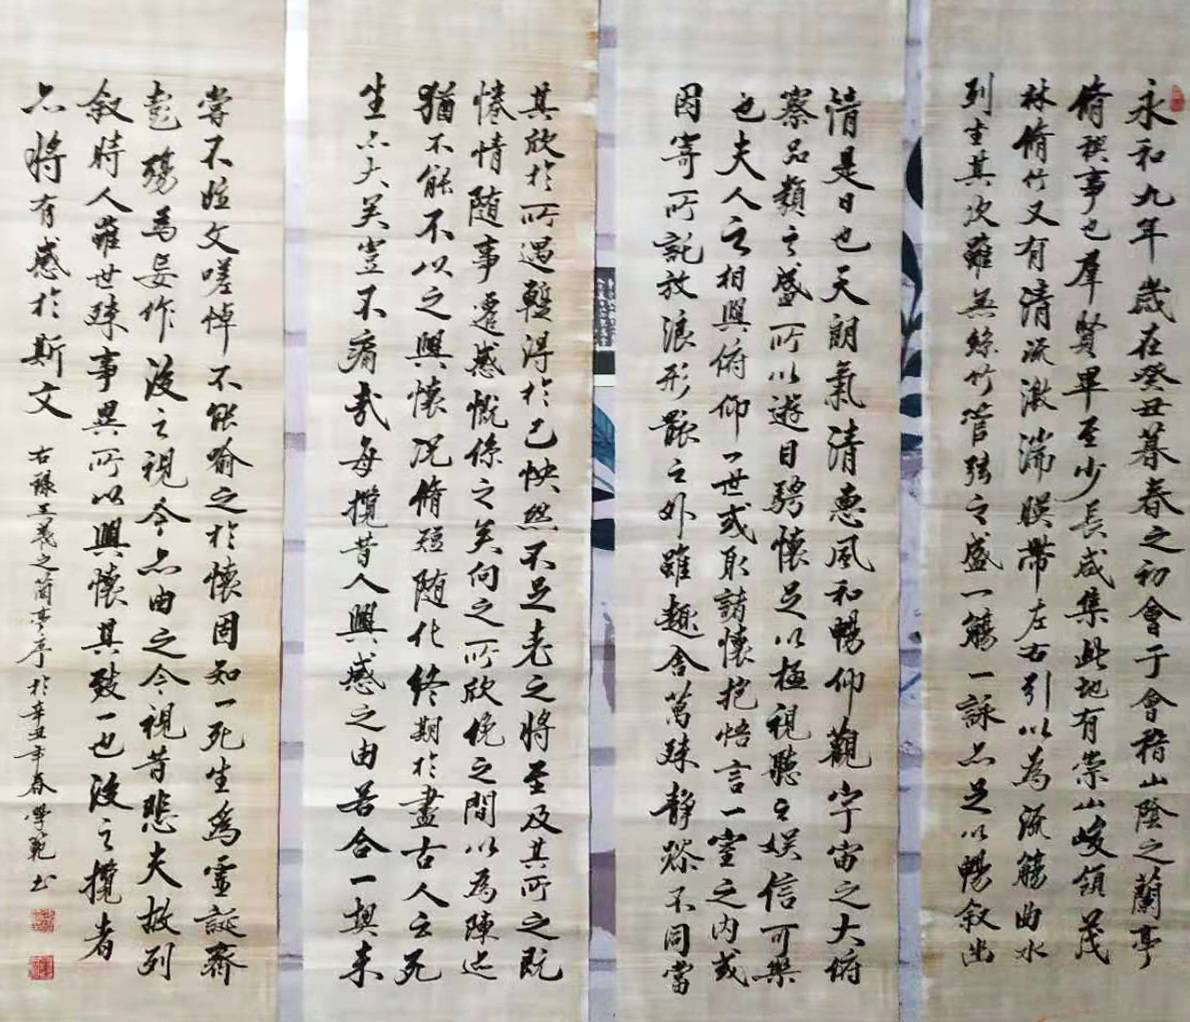 永和九年歲在癸丑暮春之初會于會稽山陰之蘭亭
脩禊事也羣賢畢至少長咸集此地有崇山峻領茂
林脩竹又有清流激湍暎帶左右引以為流觴曲水
列坐其次雖無絲竹管弦之盛一觴一詠亦足以暢叙幽
情是日也天朗氣清惠風和暢仰觀宇宙之大俯
察品類之盛所以遊目騁懷足以極視聽之娛信可樂
也夫人之相與俯仰一世或取諸懷抱悟言一室之内或
因寄所託放浪形骸之外雖趣舍萬殊靜躁不同當
其欣於所遇暫得於己怏然不足老之將至及其所之既
惓情隨事遷感慨係之矣向之所欣俛之間以為陳迹
猶不能不以之興懷況脩短隨化終期於盡古人云死
生亦大矣豈不痛哉每攬昔人興感之由若合一契未
嘗不臨文嗟悼不能喻之於懷固知一死生為虛誕齊
彭殤為妄作後之視今亦由之今視昔悲夫故列
叙時人雖世殊事異所以興懷其致一也後之攬者
亦將有感於斯文
右錄王羲之蘭亭序於辛丑年春學範書